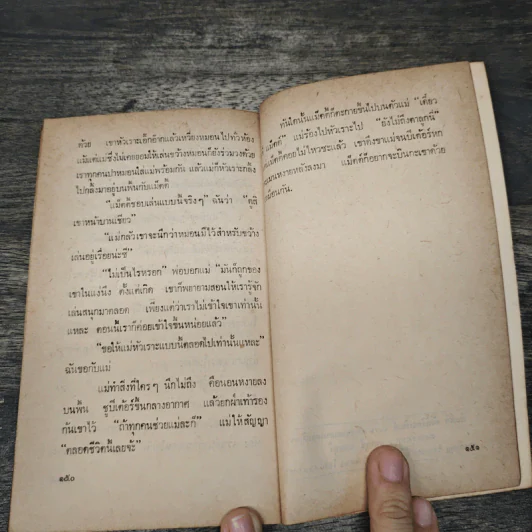 ด้วย เขาหัวเราะเอิ๊กอ๊ากแล้วเหวี่ยงหมอนไปทั่วห้อง
แม้แต่แม่ซึ่งไม่เคยยอมให้เล่นขว้างหมอนก็ยังร่วมวงด้วย
เราทุกคนปาหมอนใส่แม่พร้อมกัน แล้วแม่ก็หัวเราะกลิ้ง
ไปกลิ้งมาอยู่บนพื้นกับแม็ตต์
"แม็ตต์ชอบเล่นแบบนี้จริงๆ" ฉันว่า "ดูสิ
เขาหน้าบานเชียว"
"แม่กลัวเขาจะนึกว่าหมอนมีไว้สำหรับขว้าง
เล่นอยู่เรื่อยน่ะซี"
"ไม่เป็นไรหรอก" พ่อบอกแม่ "มันก็ถูกของ
เขาในแง่นึง ตั้งแต่เกิด เขาก็พยายามสอนให้เรารู้จัก
เล่นสนุกมาตลอด เพียงแต่ว่าเราไม่เข้าใจเขาเท่านั้น
แหละ ตอนนี้เราก็ค่อยเข้าใจขึ้นหน่อยแล้ว"
"ขอให้แม่หัวเราะแบบนี้ตลอดไปเท่านั้นแหละ"
ฉันขอกับแม่
แม่ทำสิ่งที่ใครๆ นึกไม่ถึง คือนอนหงายลง
บนพื้น ชูปีเตอร์ขึ้นกลางอากาศ แล้วยกฝ่าเท้ารอง
ก้นเขาไว้ "ถ้าทุกคนช่วยแม่ละก็" แม่ให้สัญญา
"ตลอดชีวิตนี้เลยจ้ะ"
๑๕๐
ทันใดนั้นแม็ตต์ก็ตะกายขึ้นไปบนตัวแม่ "เดี๋ยว
แม็ตต์" แม่ร้องไปหัวเราะไป "ยังไม่ถึงตาลูกนี่"
แม็ตต์คอยไม่ไหวซะแล้ว เขาดึงขาแม่จนปีเตอร์หก
หงายหลังลงมา แม็ตต์ก็อยากจะบินกะเขาด้วย
เหมือนกัน.
๑๕๑